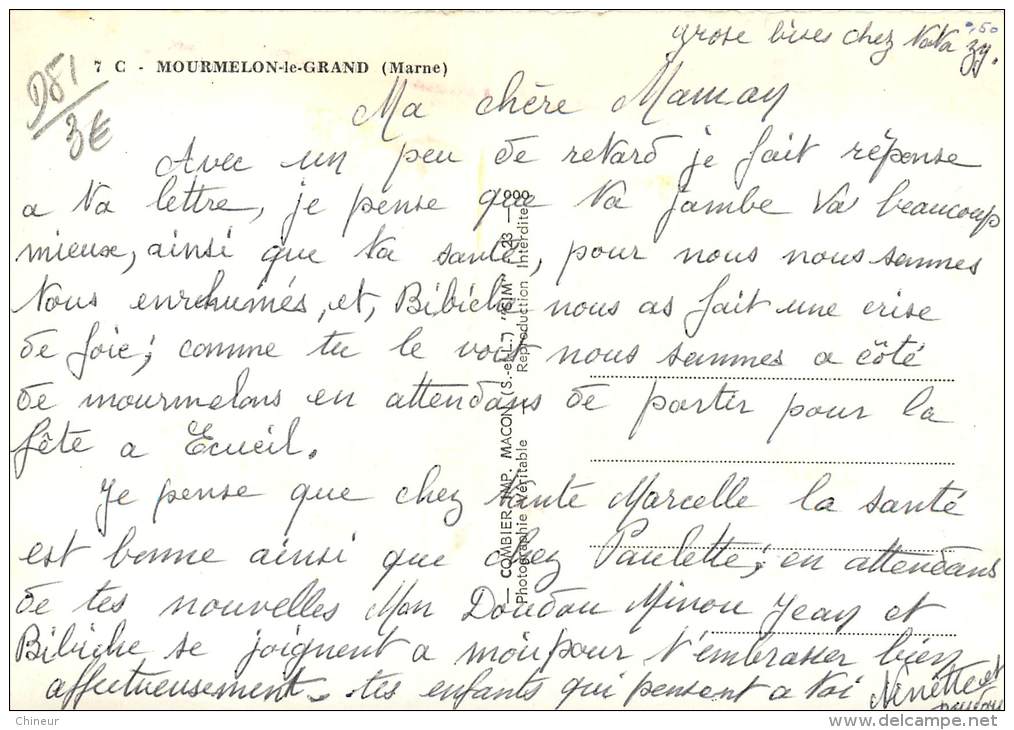 grose bises chez tata zy.
0,50
D51
3€
7 C - MOURMELON-le-GRAND (Marne)
Ma chère Maman
Avec un peu de retard je fait réponse
a ta lettre, je pense que ta jambe va beaucoup
mieux, ainsi que ta santé, pour nous nous sommes
tous enrhumés, et, Bibiche nous as fait une crise
de foie; comme tu le voit nous sommes a côté
de mourmelons en attendans de partir pour la
fête a Ecueil.
Je pense que chez tante Marcelle la santé
est bonne ainsi que chez Paulette; en attendans
de tes nouvelles Mon Doudou Minou Jean et
Bibiche se joignent a moi pour t'embrasser bien
affectueusement. tes enfants qui pensent a toi Ninette et
— COMBIER IMP. MACON (S.-et-L.) "CIM" - 23 - 999
Photographie Véritable - Reproduction Interdite
Chineur
delcampe.net